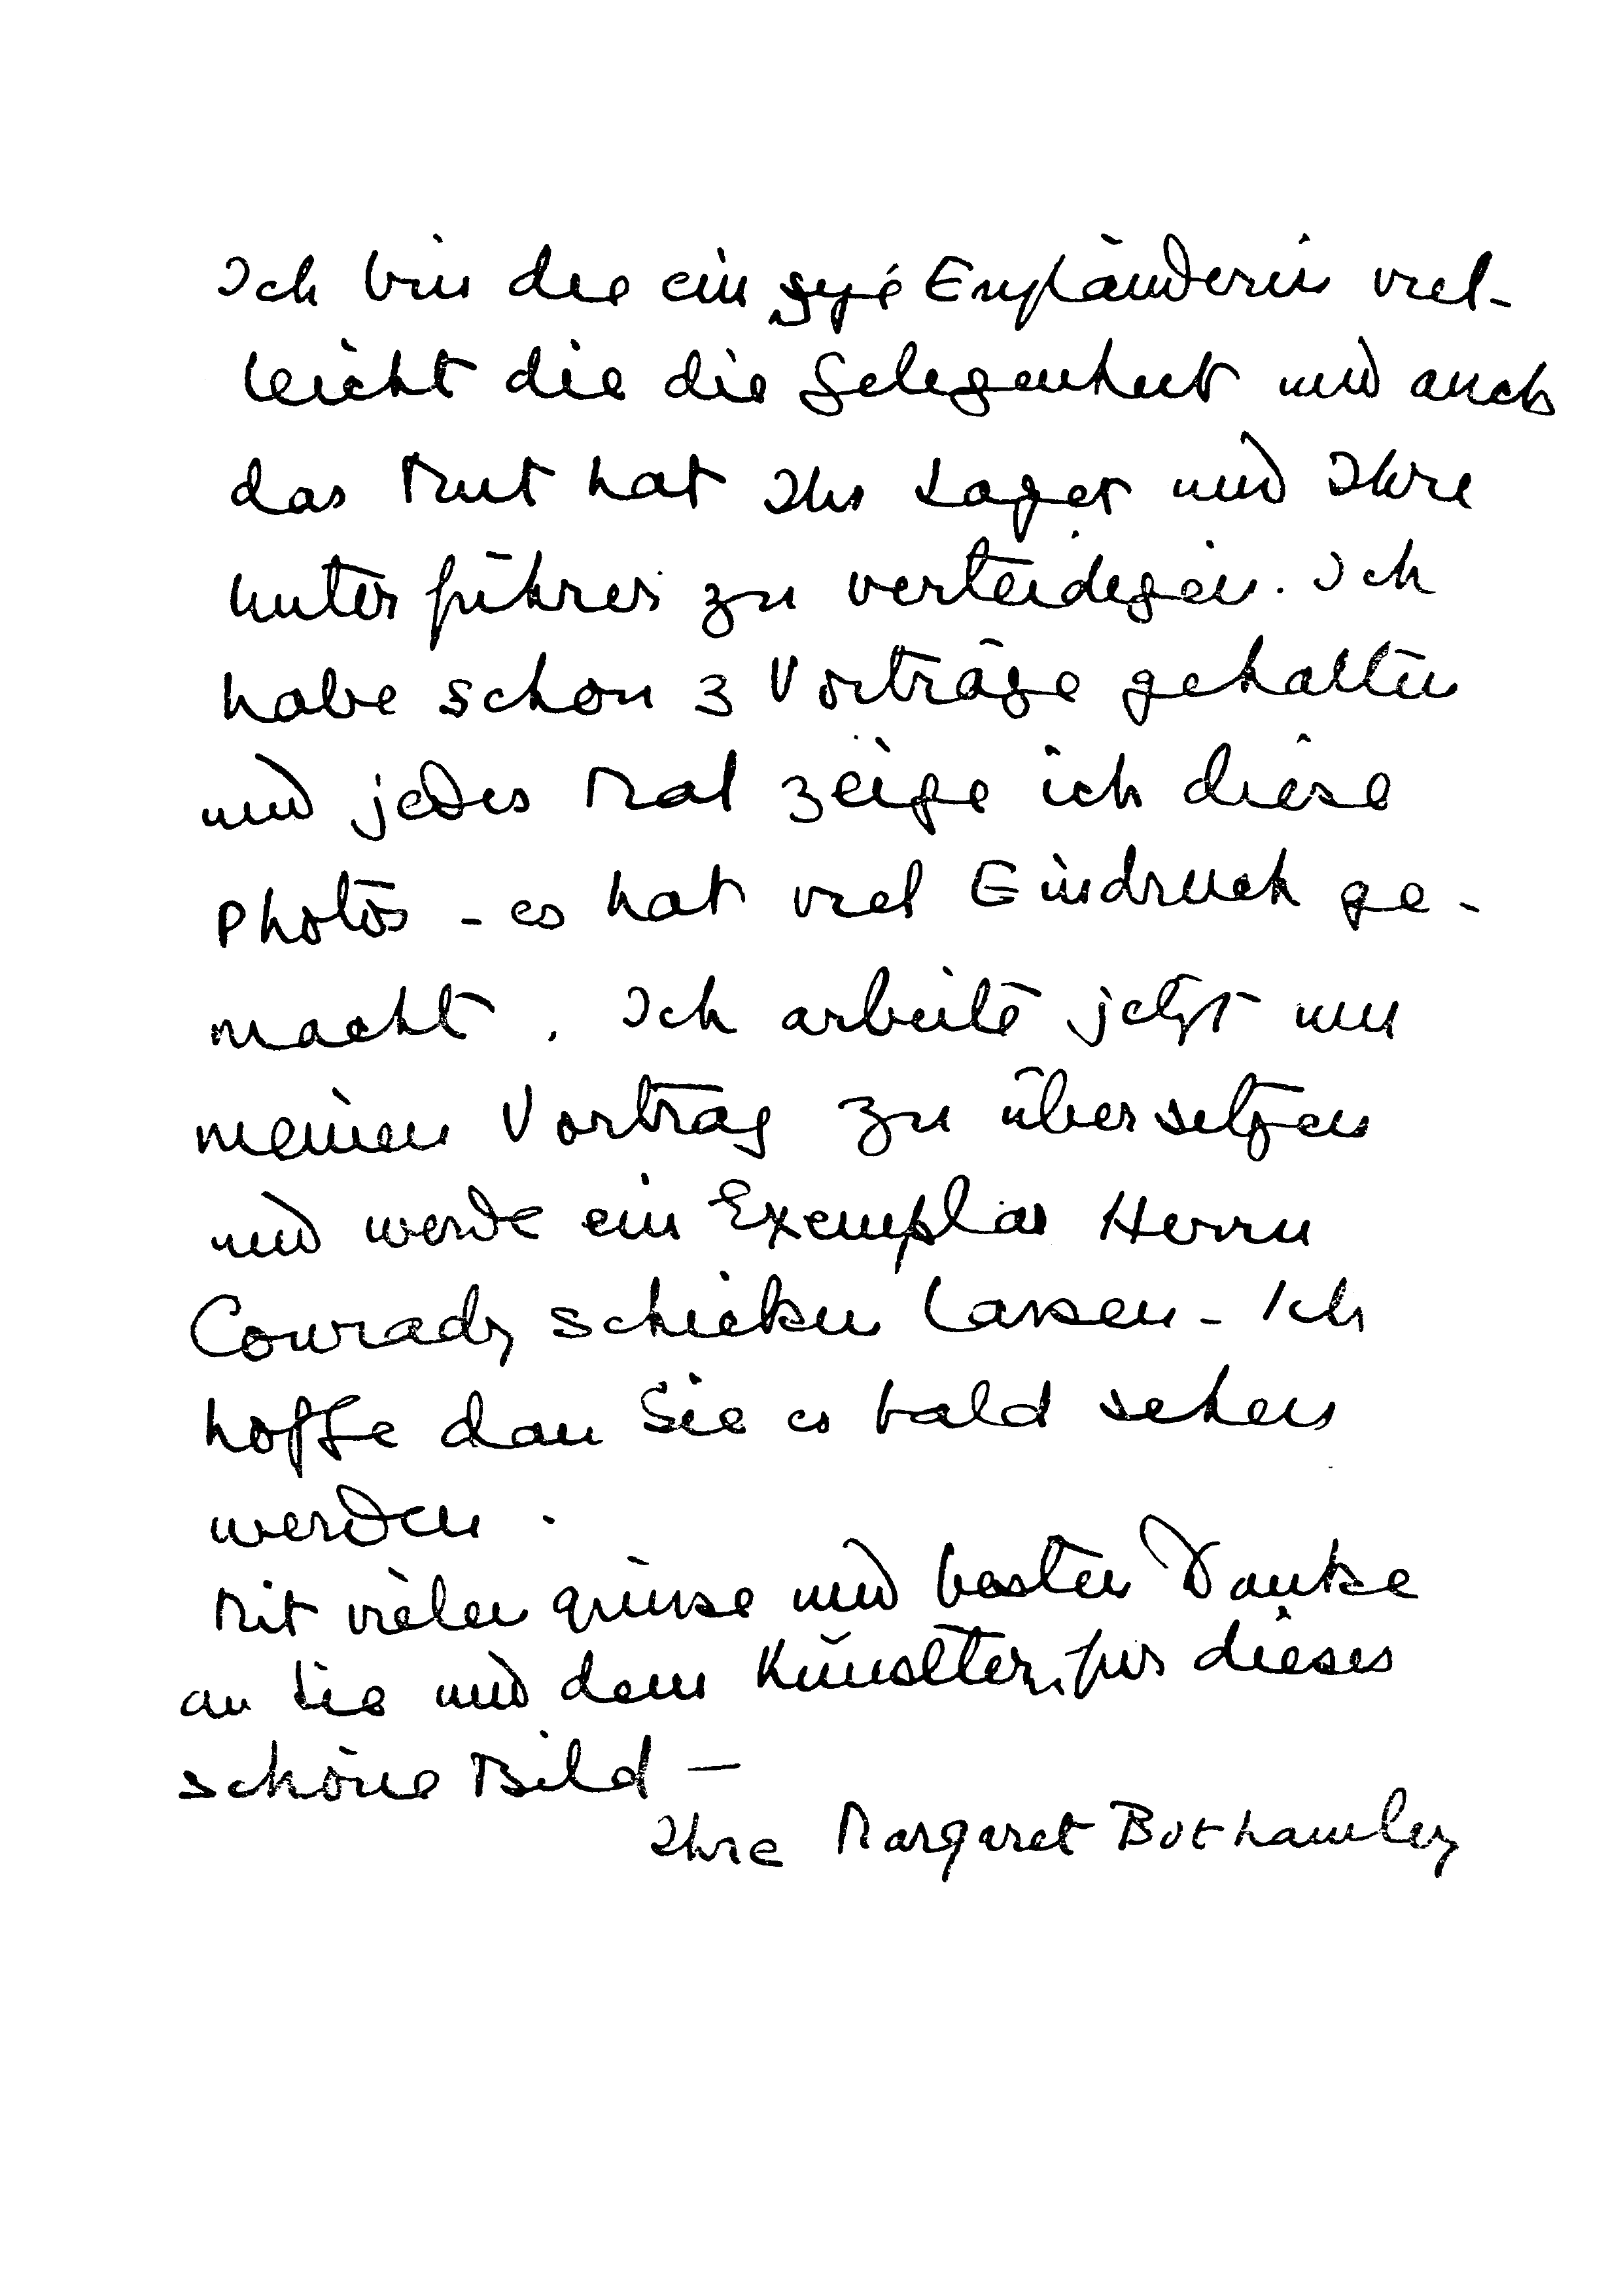 Ich bin die einzige Engländerin viel-
leicht die die Gelegenheit und auch
das Mut hat Ihr Lager und Ihre
Unterführer zu verteidigen. Ich
habe schon 3 Vorträge gehalten
und jedes Mal zeige ich diese
Photos - es hat viel Eindruck ge-
macht. Ich arbeite jetzt um
meinen Vortrag zu übersetzen
und werde ein Exemplar Herrn
Conrady schicken lassen - Ich
hoffe dass Sie es bald sehen
werden.
Mit vielen grüsse und besten Danke
an Sie und dem Künstler, für dieses
schöne Bild —
Ihre Margaret Bothamley